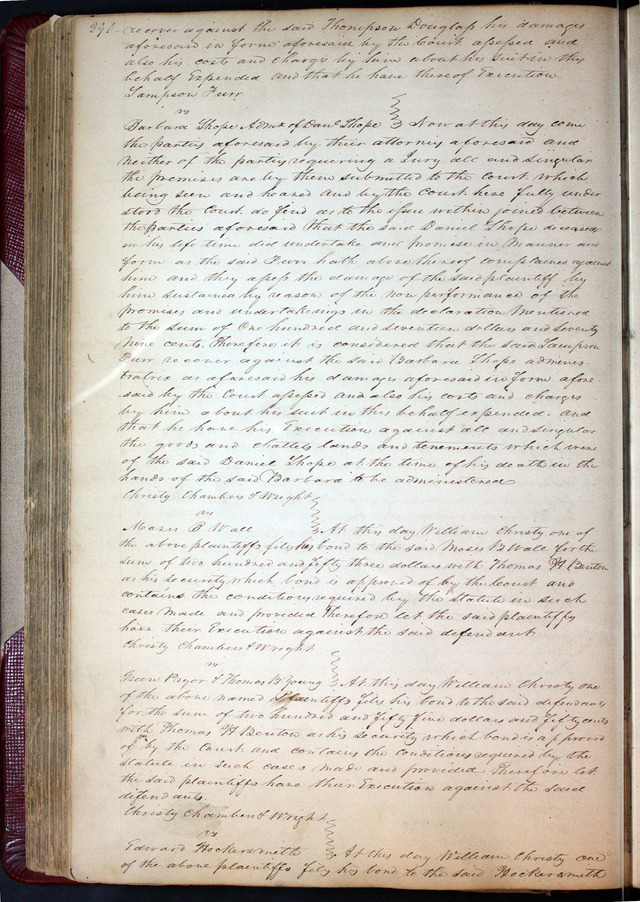 recover against the said Thompson Douglass his damages
aforesaid in form aforesaid by the Court assessed and
also his costs and charges by him about his suit in this
behalf Expended and that he have thereof Execution
Sampson Furr
vs
Barbara Shope Admx of Danl. Shope Now at this day come
the parties aforesaid by their attornies aforesaid and
neither of the parties requiring a Jury all and singular
the premises are by them submitted to the Court which
being seen and heared and by the Court here fully under
stood the Court do find as to the issue within joined between
the parties aforesaid that the said Daniel Shope deceased
in his life time did undertake and promise in Manner and
form as the said Furr hath above thereof complained against
him and they assess the damage of the said plaintiff by
him sustained by reason of the non performance of the
promises and undertakeings in the declaration Mentioned
to the sum of One hundred and seventeen dollars and seventy
nine cents. Therefore it is considered that the said Sampson
Furr recover against the said Barbara Shope adminis-
tratrix as aforesaid his damages aforesaid in form afore-
said by the Court assessed and also his costs and charges
by him about his suit in this behalf expended. and
that he have his Execution against all and singular
the goods and chattels lands and tenements which were
of the said Daniel Shope at the time of his death in the
hands of the said Barbara to be administered
Christy Chambers & Wright
vs
Moses B Wall At this day William Christy one of
the above plaintiffs files his bond to the said Moses B Wall for the
sum of two hundred and fifty three dollars with Thomas H Benton
as his security which bond is approved of by the Court and
contains the conditions required by the statute in such
cases made and provided Therefore let the said plaintiffs
have their Execution against the said defendant
Christy Chambers & Wright
vs
Green Pryor & Thomas B Young At this day William Christy one
of the above named plaintiffs files his bond to the said defendants
for the sum of two hundred and fifty five dollars and fifty cents
with Thomas H Benton as his security which bond is approved
of by the Court and contains the conditions required by the
Statute in such cases made and provided Therefore let
the said plaintiffs have their Execution against the said
difendants
Christy Chambers & Wright
vs
Edward Hockersmith At this day William Christy one
of the above plaintiffs files his bond to the said Hockersmith